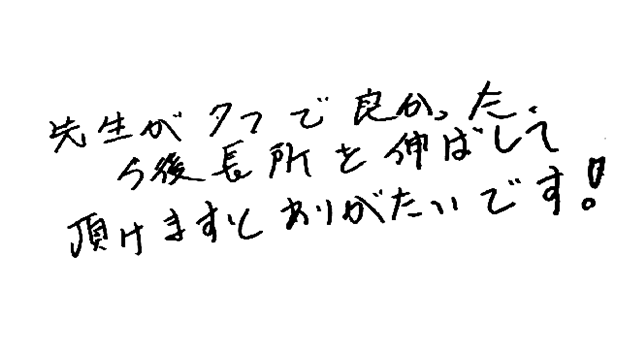 先生がタフで良かった、
今後長所を伸ばして
頂けますとありがたいです!